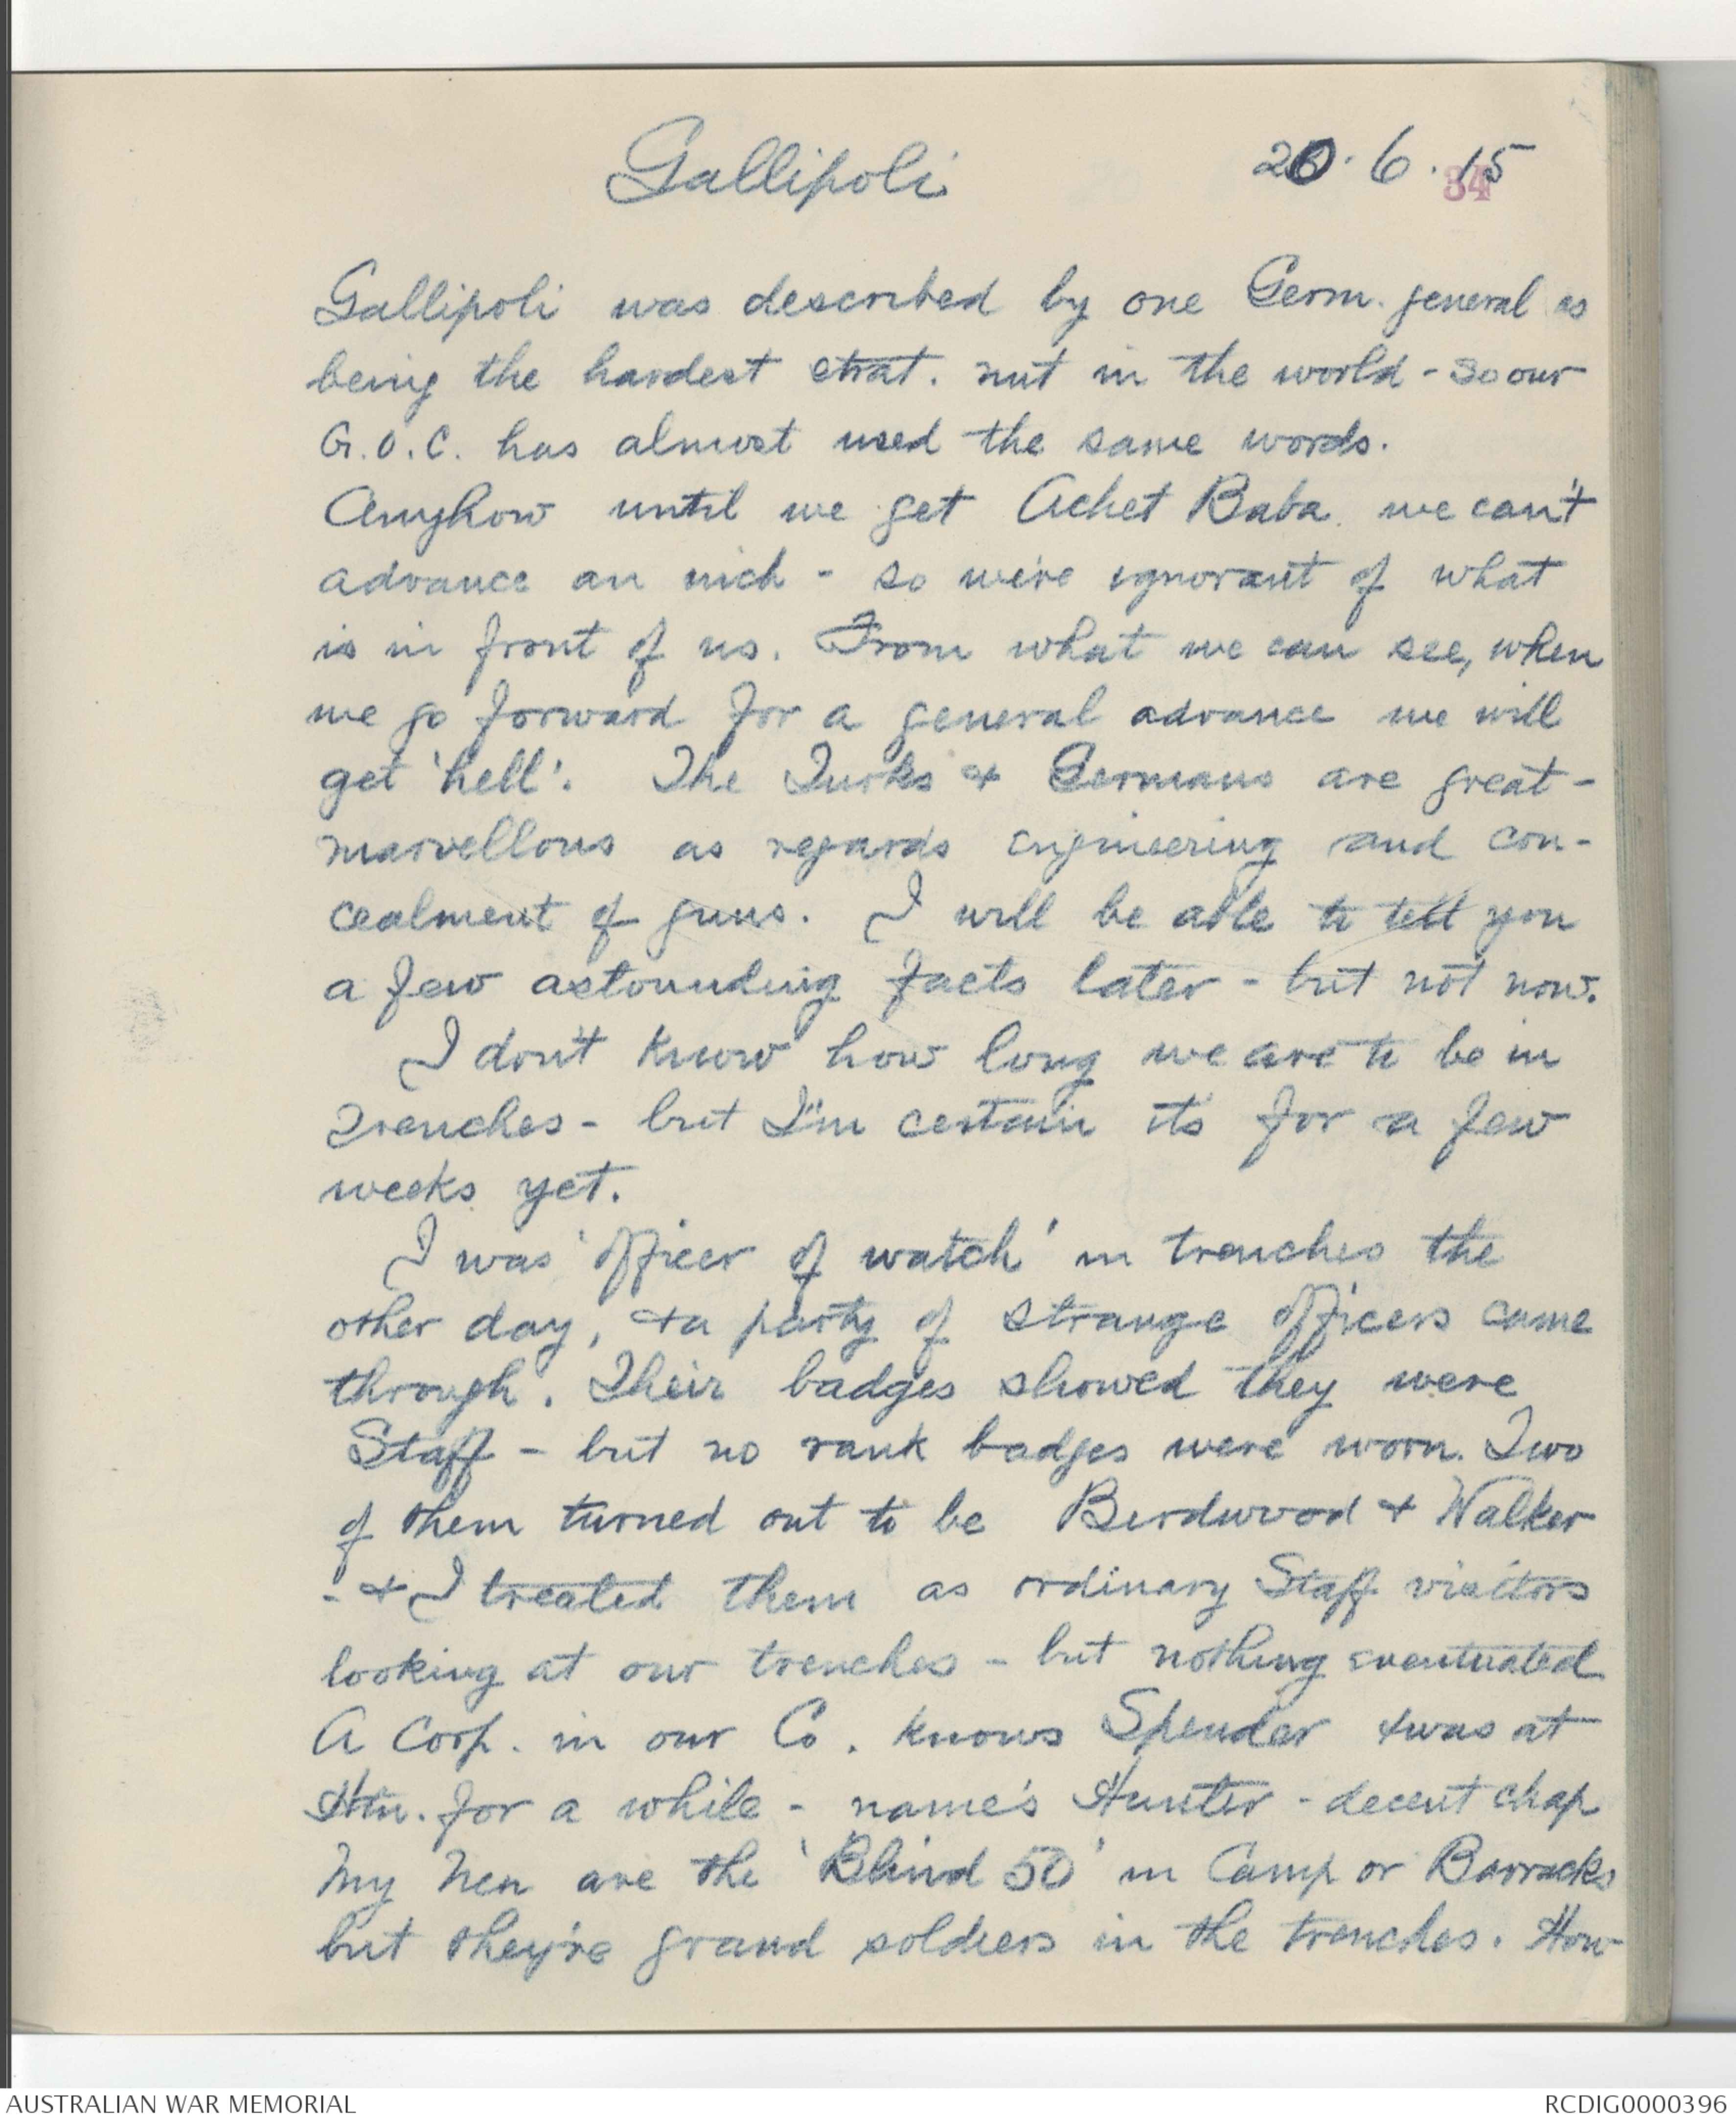 Gallipoli 20.6.15
34
Gallipoli was described by one Germ. general as
being the hardest strat. nut in the world - so our
G.O.C. has almost used the same words.
Anyhow until we get Achet Baba we can't
advance an inch - so we're ignorant of what
is in front of us. From what we can see, when
we go forward for a general advance we will
get 'hell'. The Turks & Germans are great -
marvellous as regards engineering and con-
cealment of guns. I will be able to tell you
a few astounding facts later - but not now.
I don't know how long we are to be in
Trenches - but I'm certain it's for a few
weeks yet.
I was 'officer of watch' in trenches the
other day, & a party of strange officers came
through. Their badges showed they were
Staff - but no rank badges were worn. Two
of them turned out to be Birdwood & Walker
- & I treated them as ordinary Staff visitors
looking at our trenches - but nothing eventuated
A Corp. in our Co. knows Spender & was at
Htn. for a while - name's Hunter - decent chap
My Men are the 'Blind 50' in Camp or Barracks
but they're grand soldiers in the trenches. How
AUSTRALIAN WAR MEMORIAL
RCDIG0000396